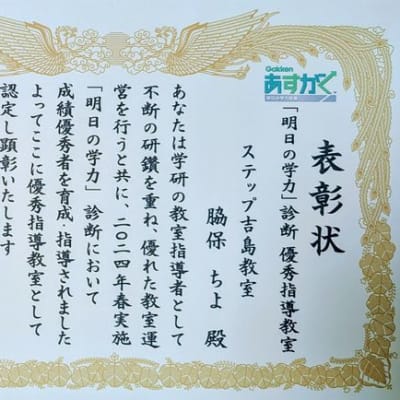 Gakken
あすがく
表彰状
「明日の学力」診断 優秀指導教室
ステップ吉島教室
脇保 ちよ 殿
あなたは学研の教室指導者として
不断の研鑽を重ね、優れた教室運
営を行うと共に、二〇二四年春実施
「明日の学力」診断において
成績優秀者を育成・指導されました
よってここに優秀指導教室として
認定し顕彰いたします